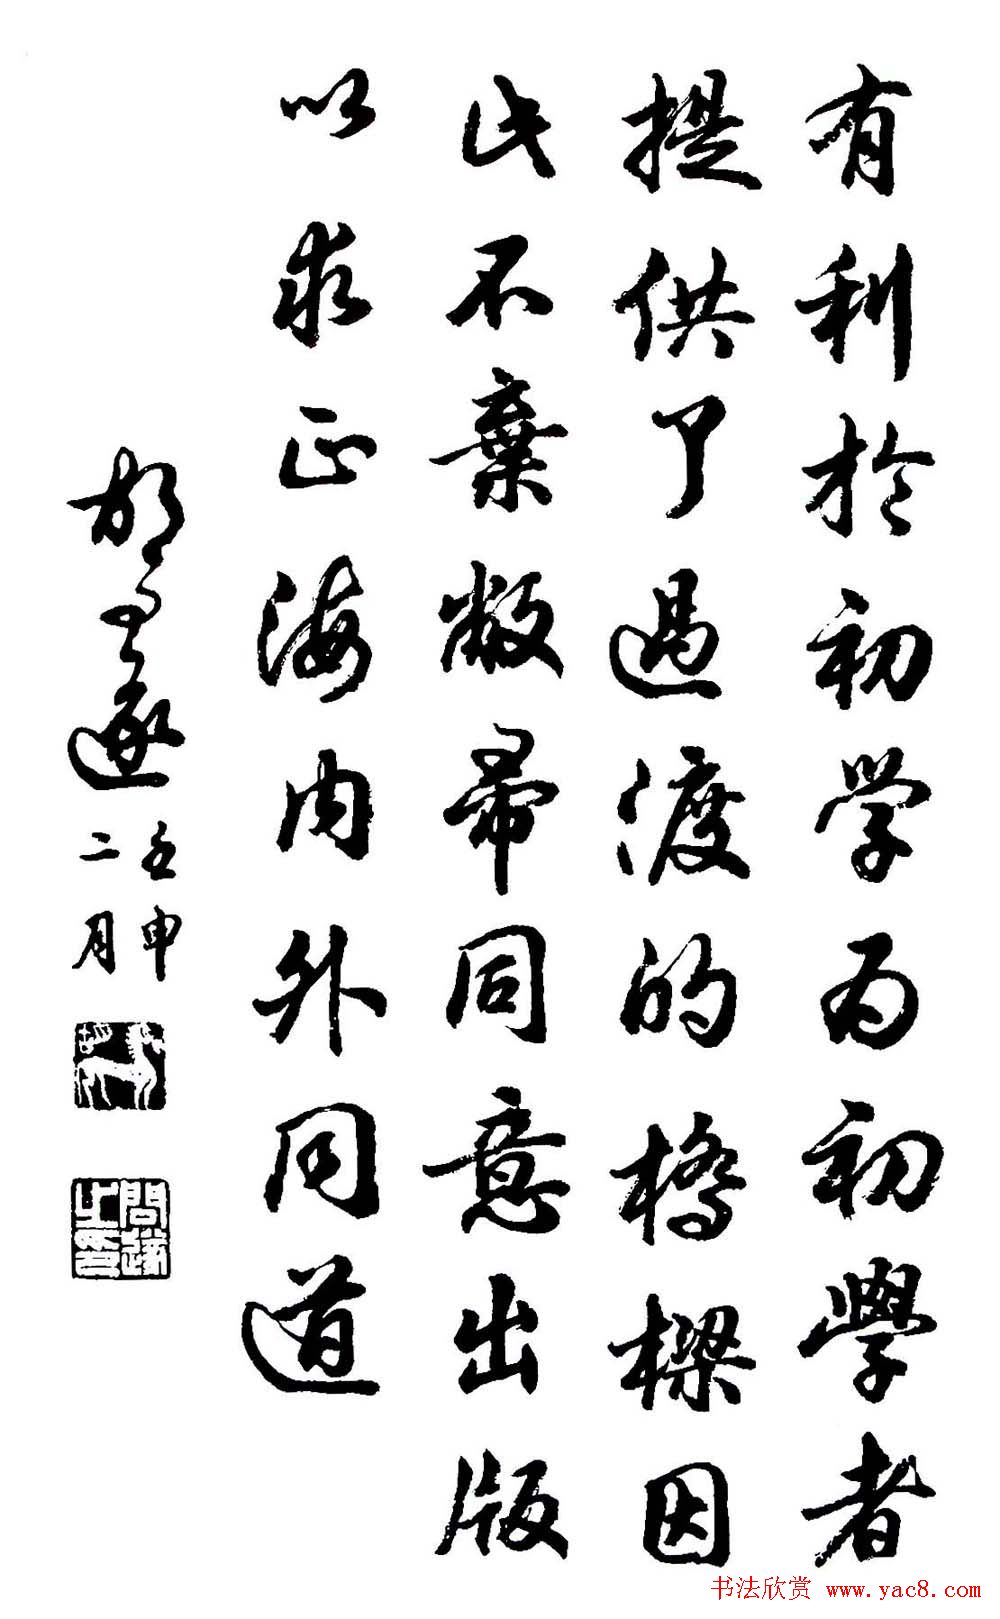 有利於初学为初學者
提供了過渡的橋樑因
此不棄敝帚同意出版
以求正海内外同道
胡问遂
壬申
二月
問遂
之印
书法欣赏 www.yac8.com